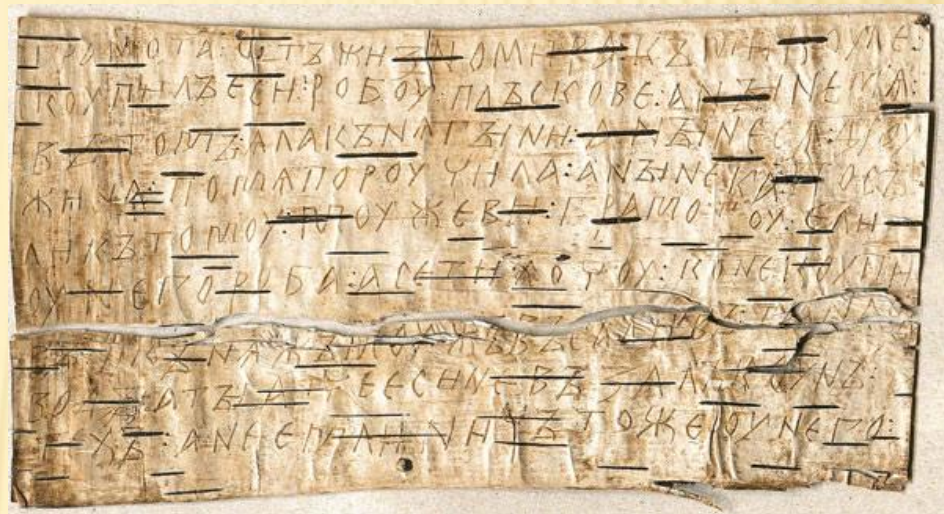 грамота : ѿтъ жизномира : къ микоуле :
коупилъ еси : робоу : плъскове : а нꙑне мѧ :
въ томъ : ѧла кънѧгꙑни : а нꙑне сѧ дроу
жина : по мѧ пороучила : а нꙑне ка : посъ
ли къ томоу : моужеви : грамотоу : е ли
оу него роба : а се ти хочоу : коне коупи
въ : и кънѧжъ моужъ въсадивъ : та на съ
водꙑ : а тꙑ атче еси не възалъ коунъ :
техъ : а не емли : ничъто же оу него :